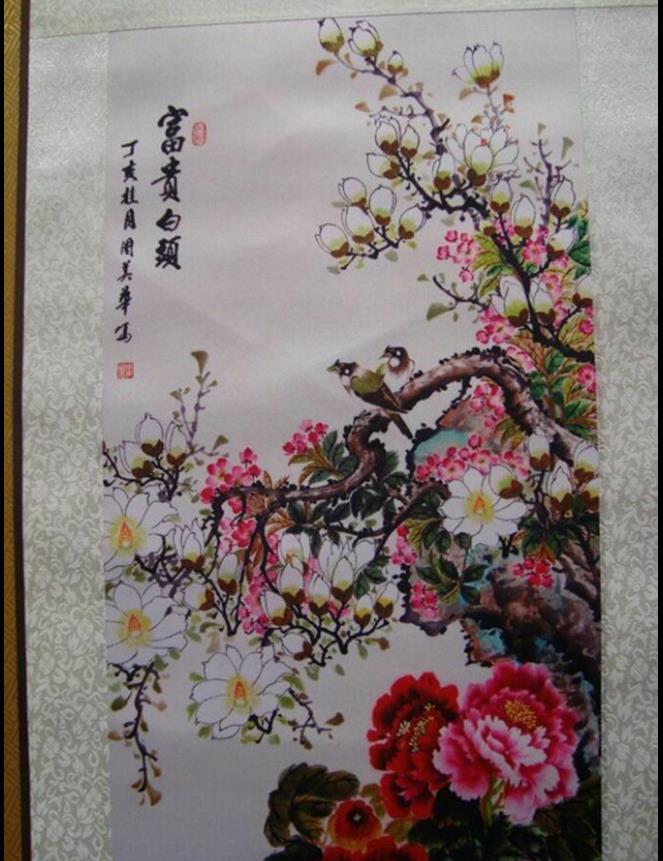 富貴白頭
丁亥桂月周美華寫